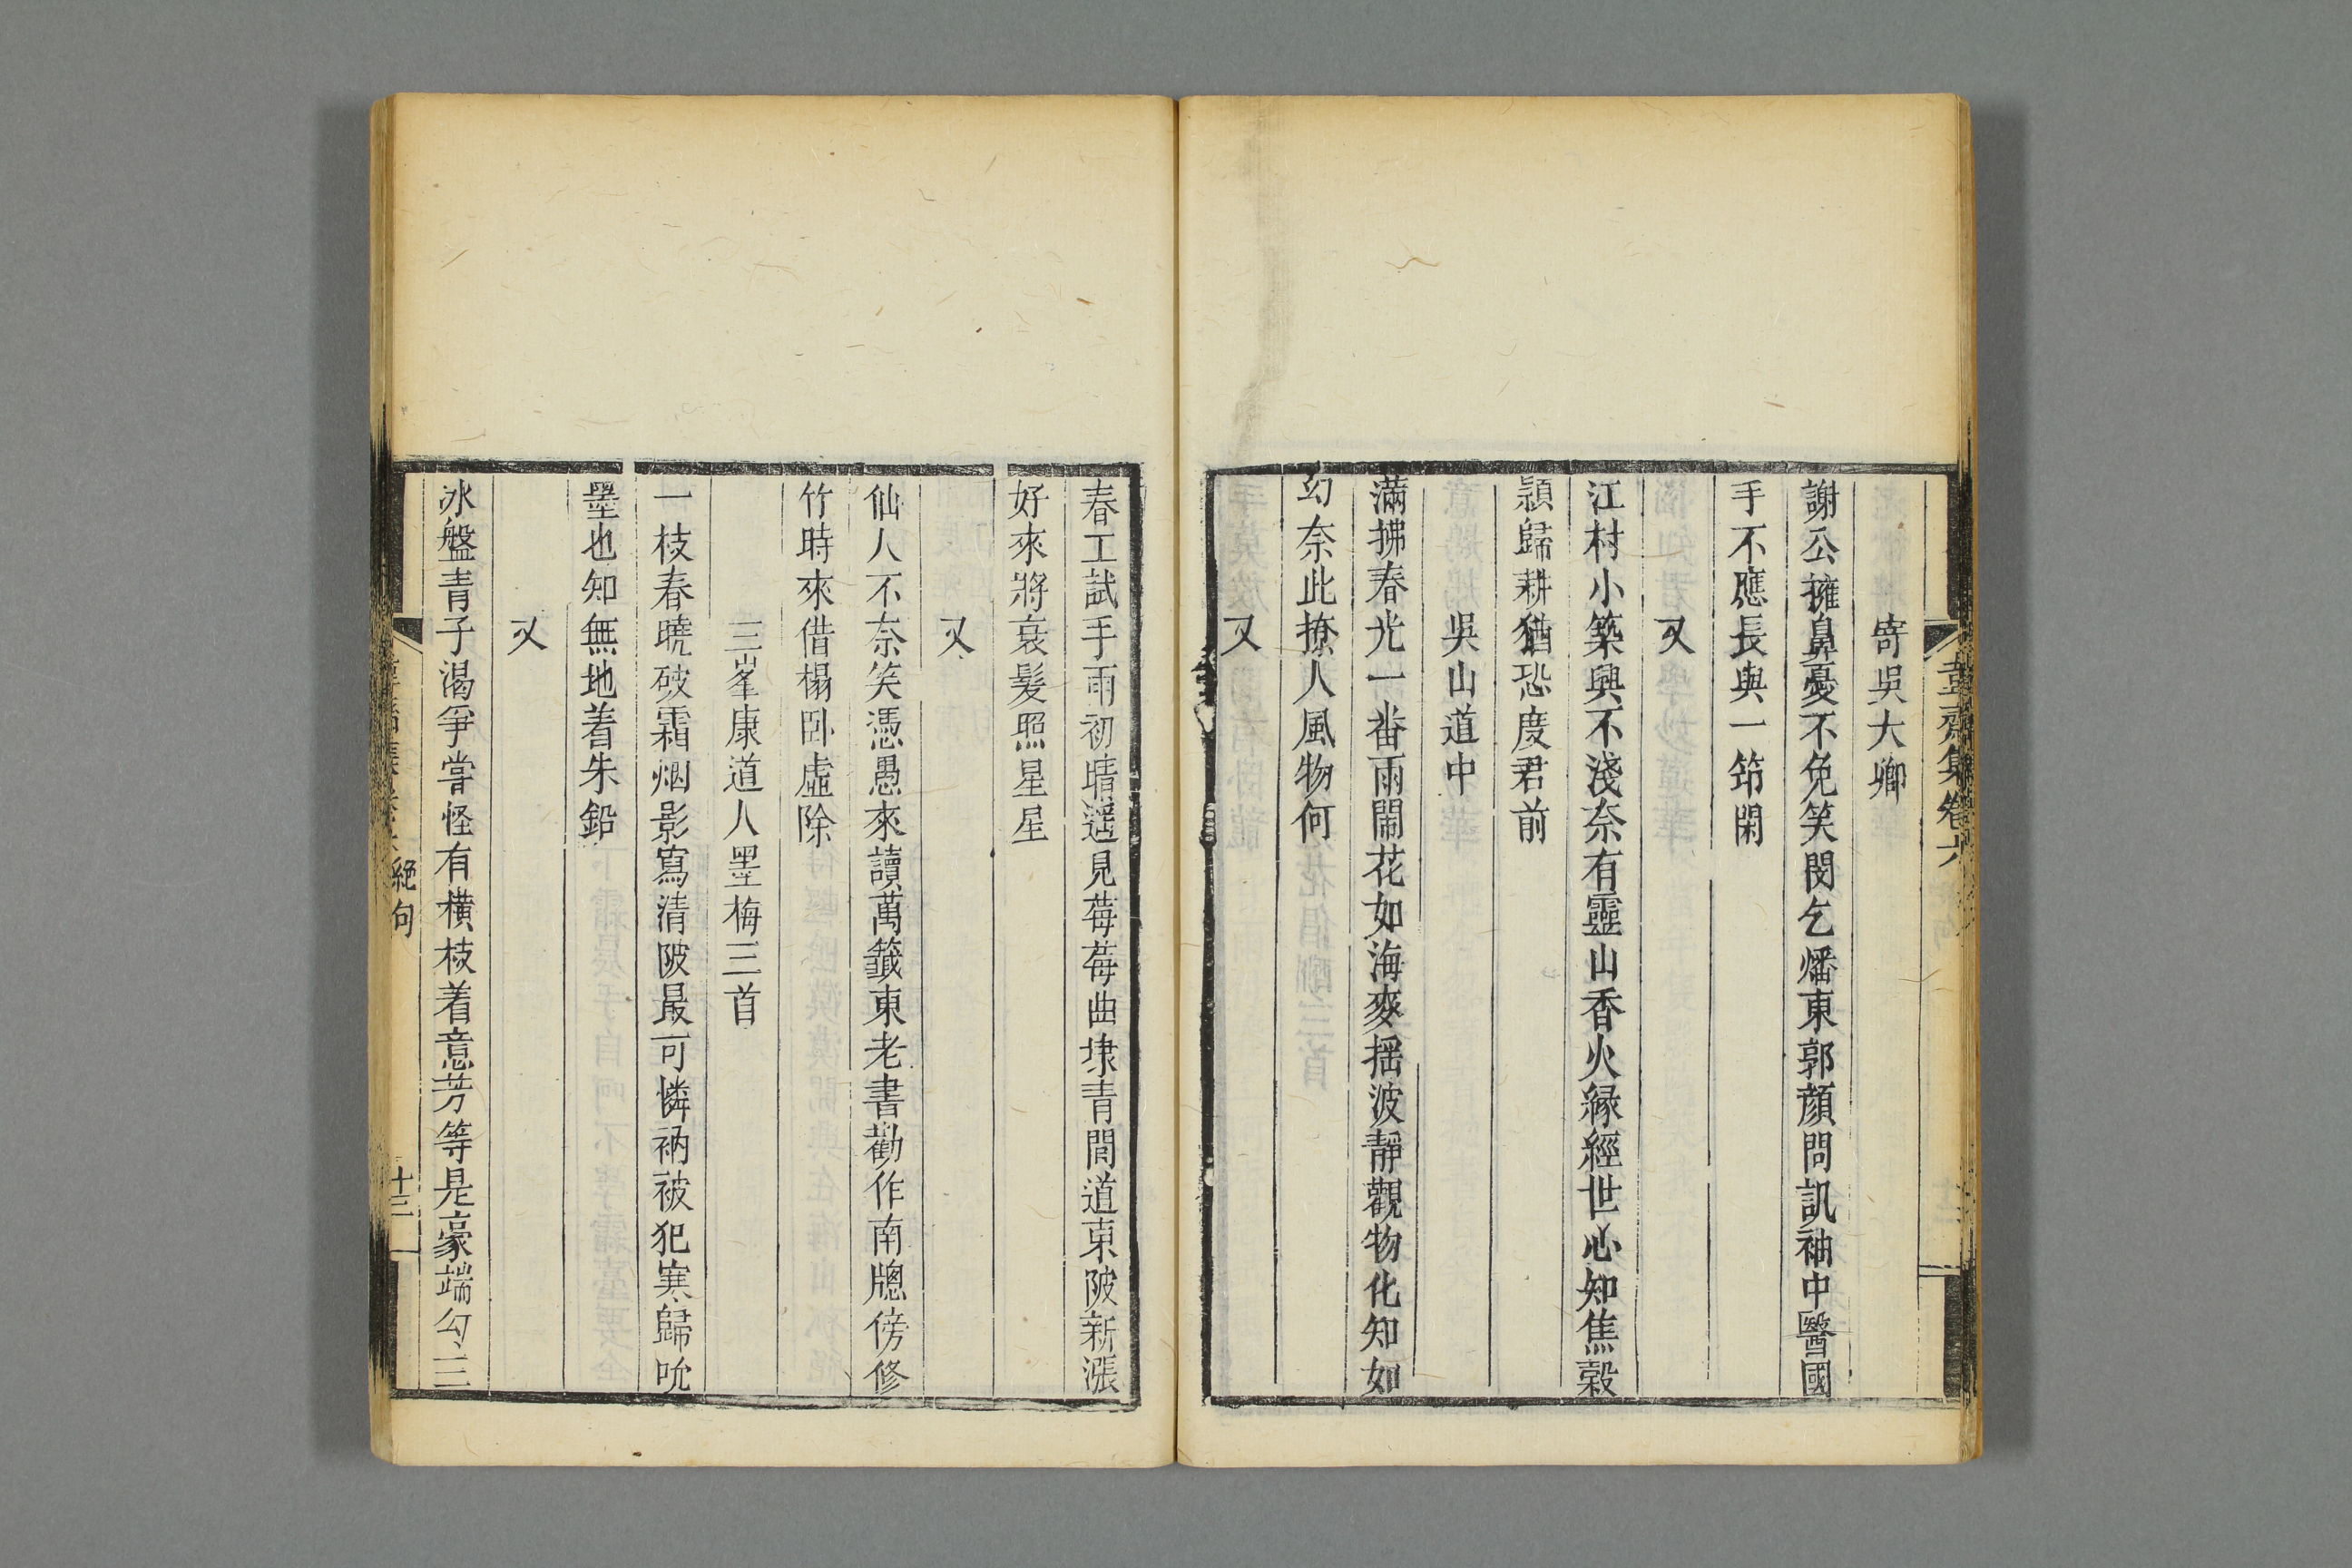 韋齋集卷六
寄吳大卿
謝公擁鼻憂不免笑閔乞燔東郭顏問訊袖中醫國
手不應長與一笻閑
又
江村小築興不淺奈有靈山香火緣經世心知焦穀
穎歸耕猶恐度君前
吳山道中
滿拂春光一番雨鬧花如海麥搖波靜觀物化知如
幻奈此撩人風物何
又
春工試手雨初晴遥見莓莓曲埭青間道東陂新漲
好來將衰髮照星星
又
仙人不奈笑憑愚來讀萬籤東老書勸作南牕傍修
竹時來借榻卧虛除
三峯康道人墨梅三首
一枝春曉破霜烟影寫清陂最可憐衲被犯寒歸吮
墨也知無地着朱鉛
又
冰盤青子渴爭嘗怪有橫枝着意芳等是豪端勾三
絕句
十三